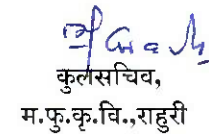 कुलसचिव,
म.फु.कृ.वि.,राहुरी